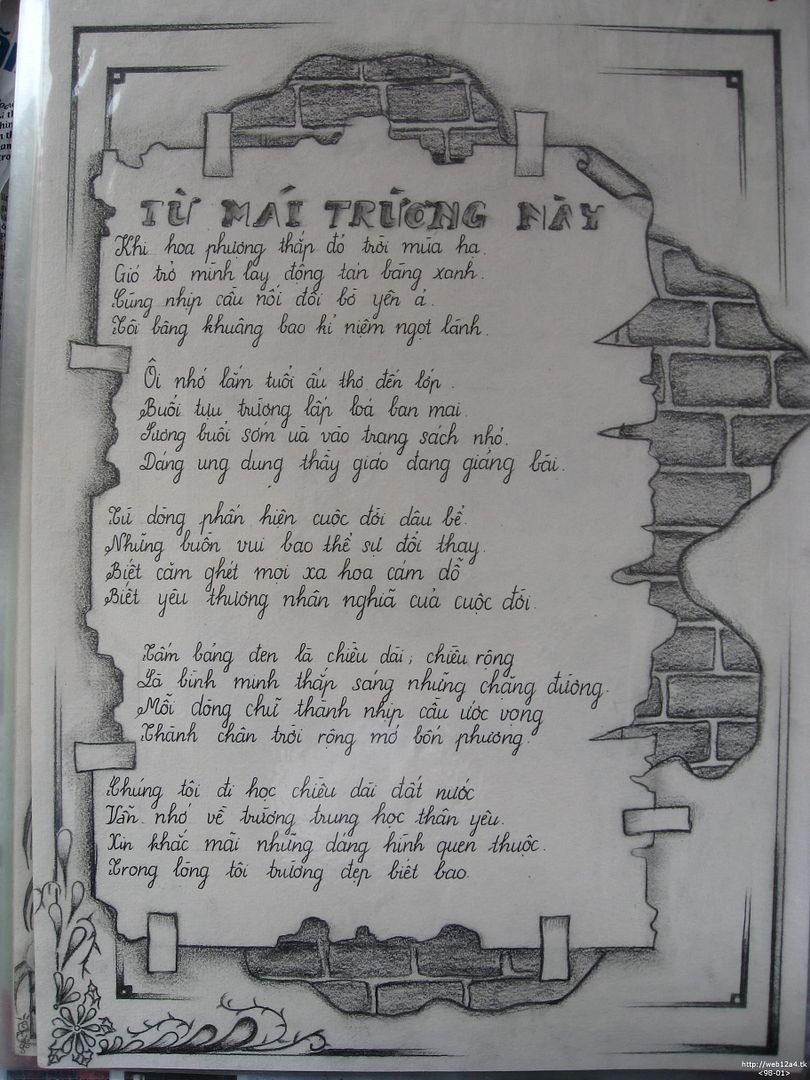 TỪ MÁI TRƯỜNG NÀY
Khi hoa phượng thắp đỏ trời mùa hạ.
Gió trở mình lay động tán bàng xanh.
Cũng nhịp cầu nối đôi bờ yên ả.
Tôi bâng khuâng bao kỉ niệm ngọt lành.
Ôi nhớ lắm tuổi ấu thơ đến lớp.
Buổi tựu trường lấp loá ban mai.
Sương buổi sớm ùa vào trang sách nhỏ.
Dáng ung dung thầy giáo đang giảng bài.
Từ dòng phấn hiện cuộc đời dâu bể.
Những buồn vui bao thể sự đổi thay.
Biết căm ghét mọi xa hoa cám dỗ
Biết yêu thương nhân nghĩa của cuộc đời.
Tấm bảng đen là chiều dài, chiều rộng
Là bình minh thắp sáng những chặng đường.
Mỗi dòng chữ thành nhịp cầu ước vọng
Thành chân trời rộng mở bốn phương.
Chúng tôi đi học chiều dài đất nước
Vẫn nhớ về trường trung học thân yêu.
Xin khắc mãi những dáng hình quen thuộc.
Trong lòng tôi trường đẹp biết bao.
http://web12a4.tk
<98-01>